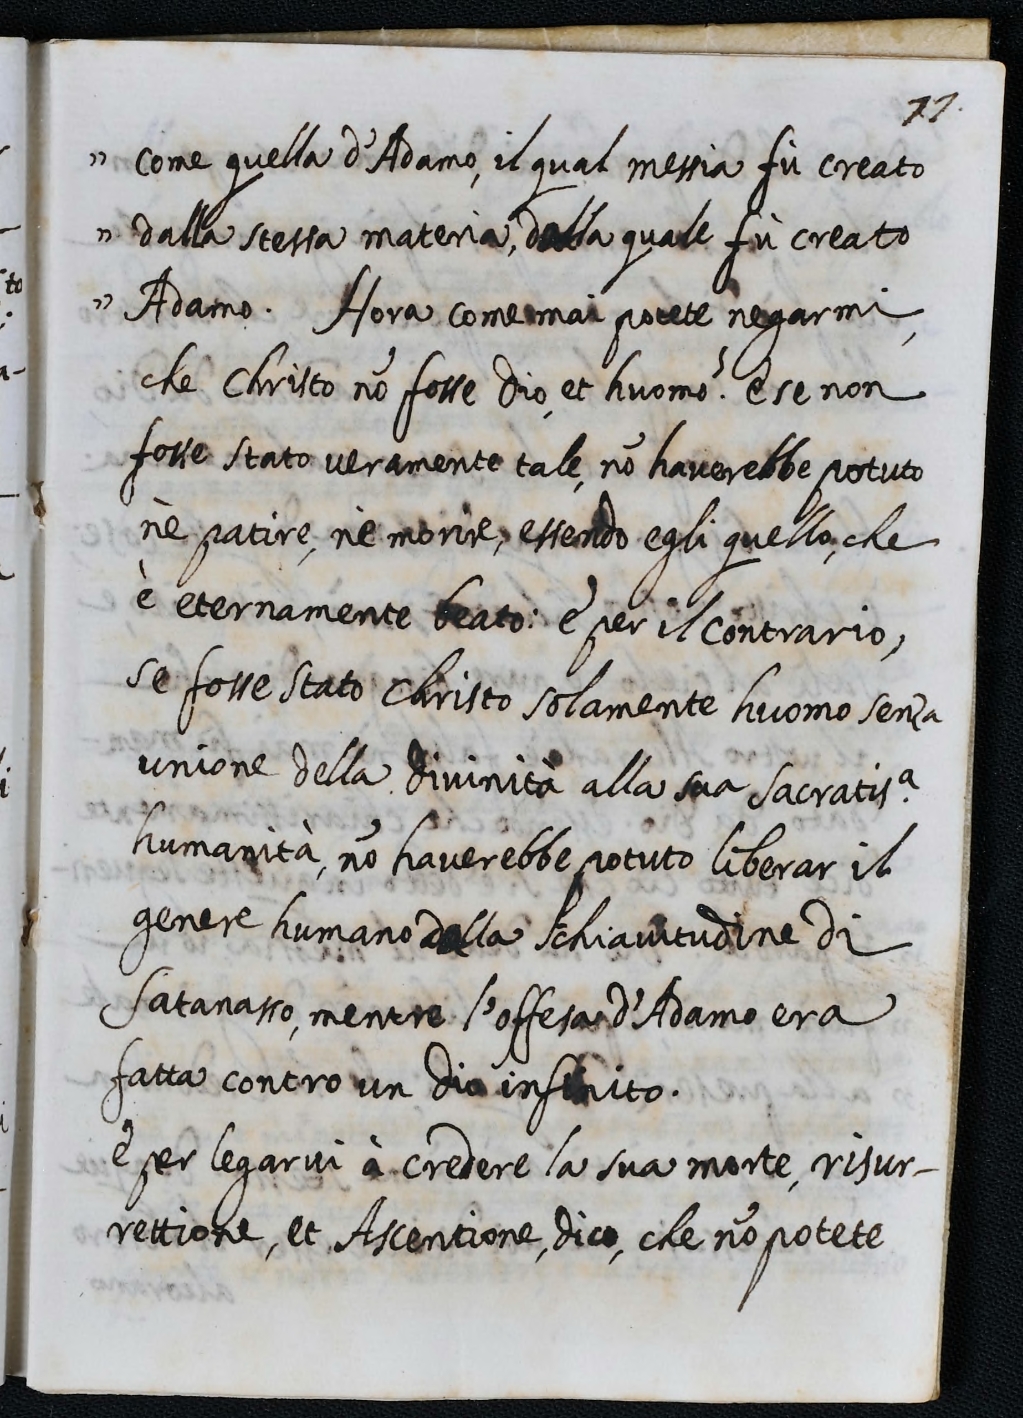 77.
" come quella d'Adamo, il qual messia fù creato
" dalla stessa materia, dalla quale fù creato
" Adamo. Hora come mai potete negarmi,
che Christo nõ fosse dio, et huomo? e se non
fosse stato veramente tale, nõ haverebbe potuto
nè patire, nè morire, essendo egli quello, che
è eternamente beato: e per il contrario,
se fosse stato Christo solamente huomo senza
unione della divinità alla sua sacratis.ª
humanità, nõ haverebbe potuto liberar il
genere humano dalla schiavitudine di
Satanasso, mentre l'offesa d'Adamo era
fatta contro un dio infinito.
E per legarvi à credere la sua morte, risur-
rettione, et Ascentione, dico, che nõ potete